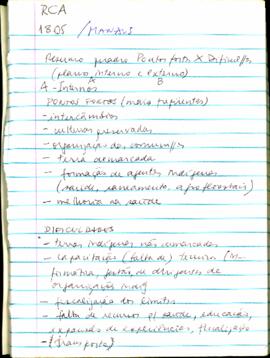 RCA
1805 / MANAUS
Resumo quadro Pontos fortes X Dificuld/s
(plano interno e externo)
A B
A - Internos
PONTOS FORTES (mais
- intercâmbios
- culturas preservadas
- organização das comunid/s
- terra demarcada
- formação de agentes indígenas
(saúde, saneamento, agroflorestais)
- melhoria na saúde
DIFICULDADES
- terras indígenas não demarcadas
- capacitação (falta de) técnica (In-
formática, gestão, de dirigentes de
organização indíg
- fiscalização dos limites
- falta de recursos p/ saúde, educação,
expansão de experiências, fiscalização
- (transporte)